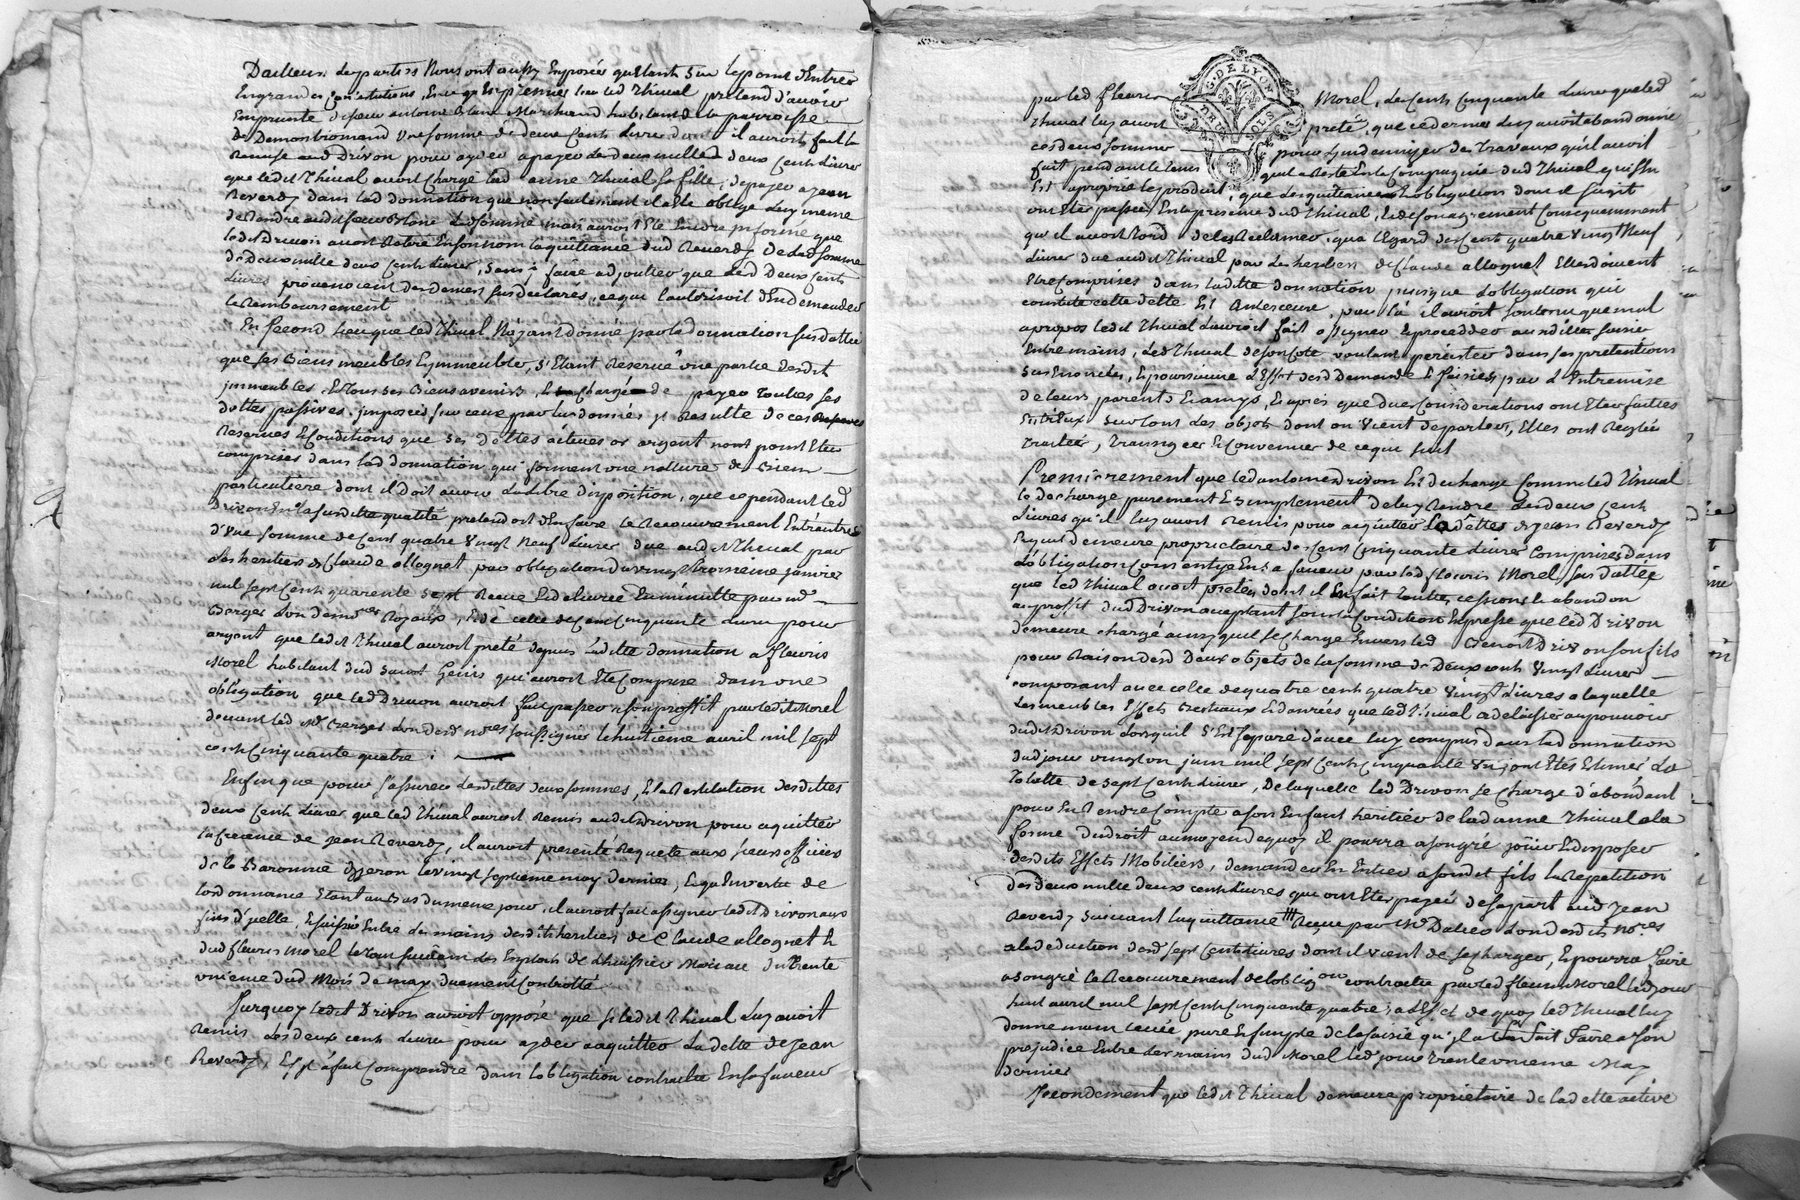 D'ailleurs les parties Nous ont aussy Exposées qu'Etants Sur le point d'Entrer
En grandes Contestations, En ce qu'En premier lieu led Thival pretend d'avoir
Emprunté du sieur antoine Blanc Marchand habitant de la parroisse
De Demontromand Une somme de deux Cents livres dont il auroit fait la
Remise aud Drivon pour ayder a payer les deux mille deux Cents livres
que ledit Thival avoit Chargé lad anne Thival sa fille, de payer a Jean
Reverdy dans lad donnation que non seulement il a Eté obligé luy meme
de Rendre audit sieur Blanc lad somme, mais auroit Eté Encore informé que
ledit Drivon avoit Retiré En son nom la quittance dud Reverdy de lad somme
de deux mille deux Cents livres, sans y faire adjoutter que lesd deux Cents
livres provenoient des deniers susdeclarés, ce qui l'authorisoit d'En demander
le Remboursement
En second lieu que led Thival N'ayant donné par la donnation susdattée
que ses Biens meubles Et immeubles, s'Etant Reservé une partie desdit
immeubles, Et tous ses Biens avenirs, Et Chargé de payer toutes ses
dettes passives imposées sur ceux par luy donnés, il Resulte de ces
Reserves Et Conditions que ses dettes actives or argent n'ont point Eté
comprises dans lad donnation qui forment une nature de Biens
particuliere dont il doit avoir la libre disposition, que cependant led
Drivon En la susditte qualité pretendoit d'En faire le Recouvrement Entr'autres
d'Une somme de Cent quatre Vingt Neuf Livres due audit Thival par
les heritiers de Claude allognet par obligation du vingt troisieme janvier
mil sept Cents quarente sept Recue Et delivrée En minutte par me
Berger l'un desd nores Royaux, Et de celle de Cent Cinquante livres pour
argent que ledit Thival auroit preté depuis lad donnation a fleuris
Morel habitant dud saint Genis qui auroit Eté Comprise dans une
obligation que led Drivon auroit fait passer a son proffit par ledit Morel
devant led Me Berger l'un desd nores soussigné le huitieme avril mil sept
cents Cinquante quatre.
Enfin que pour s'assurer desdittes deux sommes, Et la Restitution desdittes
deux Cents livres que led Thival auroit Remis audit Drivon pour aquitter
la creance de Jean Reverdy, il auroit presenté Requete aux sieurs officiers
de la Baronnie d'yzeron le vingt septieme may dernier, Et qu'En vertu de
l'ordonnance Etant au Bas du meme jour, il auroit fait assigner ledit Drivon aux
fins d'ycelle, Et saisir Entre les mains desdits heritiers de Claude allognet Et
dud fleuris Morel le tout suivant les Exploits de l'huissier Moreau du trente
unieme dud Mois de may duement Controllé
Surquoy ledit Drivon auroit opposé que si ledit Thival Luy avoit
Remis les deux cents livres pour ayder a aquitter la dette de Jean
Reverdy, Il s'est fait Comprendre dans l'obligation contractée En sa faveur
par led fleuris Morel, de Cents Cinquante livres que led
Thival luy avoit preté, que ce dernier luy avoit abandonné
ces deux sommes pour l'indemniser des Travaux qu'il avoit
fait pendant le tems qu'il a Resté En la Compagnie dud Thival qui s'En
Est aproprié le produit, que les quittances Et obligations dont il s'agit
ont Eté passées En la presence dud Thival, Et de son agrement Consequemment
qu'il avoit Tord de les Reclamer, qua l'Egard des Cent quatre Vingt Neuf
livres due audit Thival par les heritiers de Claude allognet Elles doivent
Etre Comprises dans laditte donnation puisque l'obligation qui
constitue cette dette Est Anterieure, par la il auroit soutenu que mal
apropos ledit Thival L'auroit fait assigner Et proceddé aux dittes saisies
Entre mains, Led Thival de son Coté voulant persister dans ses pretentions
Sus Enoncées, Et poursuivre l'Effet desd Demandes Et saisies par l'Entremise
de leurs parents Et amys, Et après que dues Considerations ont Eté faittes
Entr'Eux sur tout les objets dont on Vient de parler, Elles ont Reglées
Traitées, Transigées Et Convenues de ce qui suit
Premierement que led antoine Drivon Est dechargé Comme led Thival
le decharge purement Et simplement de luy Rendre Lesdeux cents
Livres qu'il luy avoit Remis pour aquitter La dette de Jean Reverdy
Et qu'il demeure proprietaire des Cent Cinquante Livres Comprises dans
L'obligation Consentye En sa faveur par led fleuris Morel susdattée
que led Thival avoit pretés dont il En fait toutes cessions Et abandon
au proffit dud Drivon acceptant sous la Condition Expresse que led Drivon
demeure chargé ainsy qu'il se charge Envers led Benoit Drivon son fils
pour Raison desd Deux objets de la somme de Deux cents Vingt Livres
composant avec celle de quatre cents quatre Vingt Livres a laquelle
Les meubles Effets Bestiaux Et danrées que led Thival a delaissé au pouvoir
dudit Drivon Lorsquil S'Est Separé d'avec luy compris dans la donnation
dudjour vingt un juin mil sept Cents Cinquante Un, ont Etés Estimés La
Totalle de sept Cents livres, De laquelle led Drivon se charge d'abondant
pour En Rendre Compte a son Enfant heritier de lad anne Thival a la
forme du droit au moyen de quoy il pourra a son gré jouir Et disposer
desdits Effets Mobiliers, demander En Entier a sondit fils la Repetition
des deux mille deux cents livres qui ont Etés payés de sa part aud Jean
Reverdy Suivant la quittance Recue par Me Dalier L'un desdits nores
a la deduction desd sept Cents livres dont il vient de se charger, Et pourra faire
a son gré le Recouvrement de l'oblig.on contractée par led fleuris Morel led jour
huit avril mil sept Cents Cinquante quatre, a l'Effet de quoy led Thival luy
donne main levée pure Et simple de la saisie qu'il a fait Faire a son
prejudice Entre les mains dud Morel led jour trente unieme May
dernier
Secondement que ledit Thival demeure proprietaire de la dette active
G. DE LYON
DEUX SOLS